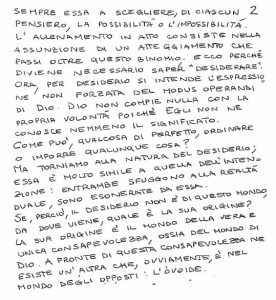 SEMPRE ESSA A SCEGLIERE, DI CIASCUN 2
PENSIERO, LA POSSIBILITÀ O L'IMPOSSIBILITÀ.
L'ALLENAMENTO IN ATTO CONSISTE NELLA
ASSUNZIONE DI UN ATTEGGIAMENTO CHE
PASSI OLTRE QUESTO BINOMIO. ECCO PERCHÉ
DIVIENE NECESSARIO SAPER "DESIDERARE".
ORA, PER DESIDERIO SI INTENDE L'ESPRESSIO
NE NON FORZATA DEL MODUS OPERANDI
DI DIO. DIO NON COMPIE NULLA CON LA
PROPRIA VOLONTÀ POICHÉ EGLI NON NE
CONOSCE NEMMENO IL SIGNIFICATO.
COME PUÒ, QUALCOSA DI PERFETTO, ORDINARE
O IMPORRE QUALUNQUE COSA?
MA TORNIAMO ALLA NATURA DEL DESIDERIO;
ESSA È MOLTO SIMILE A QUELLA DELL'INTEN-
ZIONE: ENTRAMBE SFUGGONO ALLA REALTÀ
DUALE, SONO ESONERATE DA ESSA.
SE, PERCIÒ, IL DESIDERIO NON È DI QUESTO MONDO,
DA DOVE VIENE, QUALE È LA SUA ORIGINE?
LA SUA ORIGINE È IL MONDO DELLA VERA E
UNICA CONSAPEVOLEZZA, OSSIA DEL MONDO DI
DIO. A FRONTE DI QUESTA CONSAPEVOLEZZA NE
ESISTE UN'ALTRA CHE, OVVIAMENTE, È NEL
MONDO DEGLI OPPOSTI: L'OVOIDE.